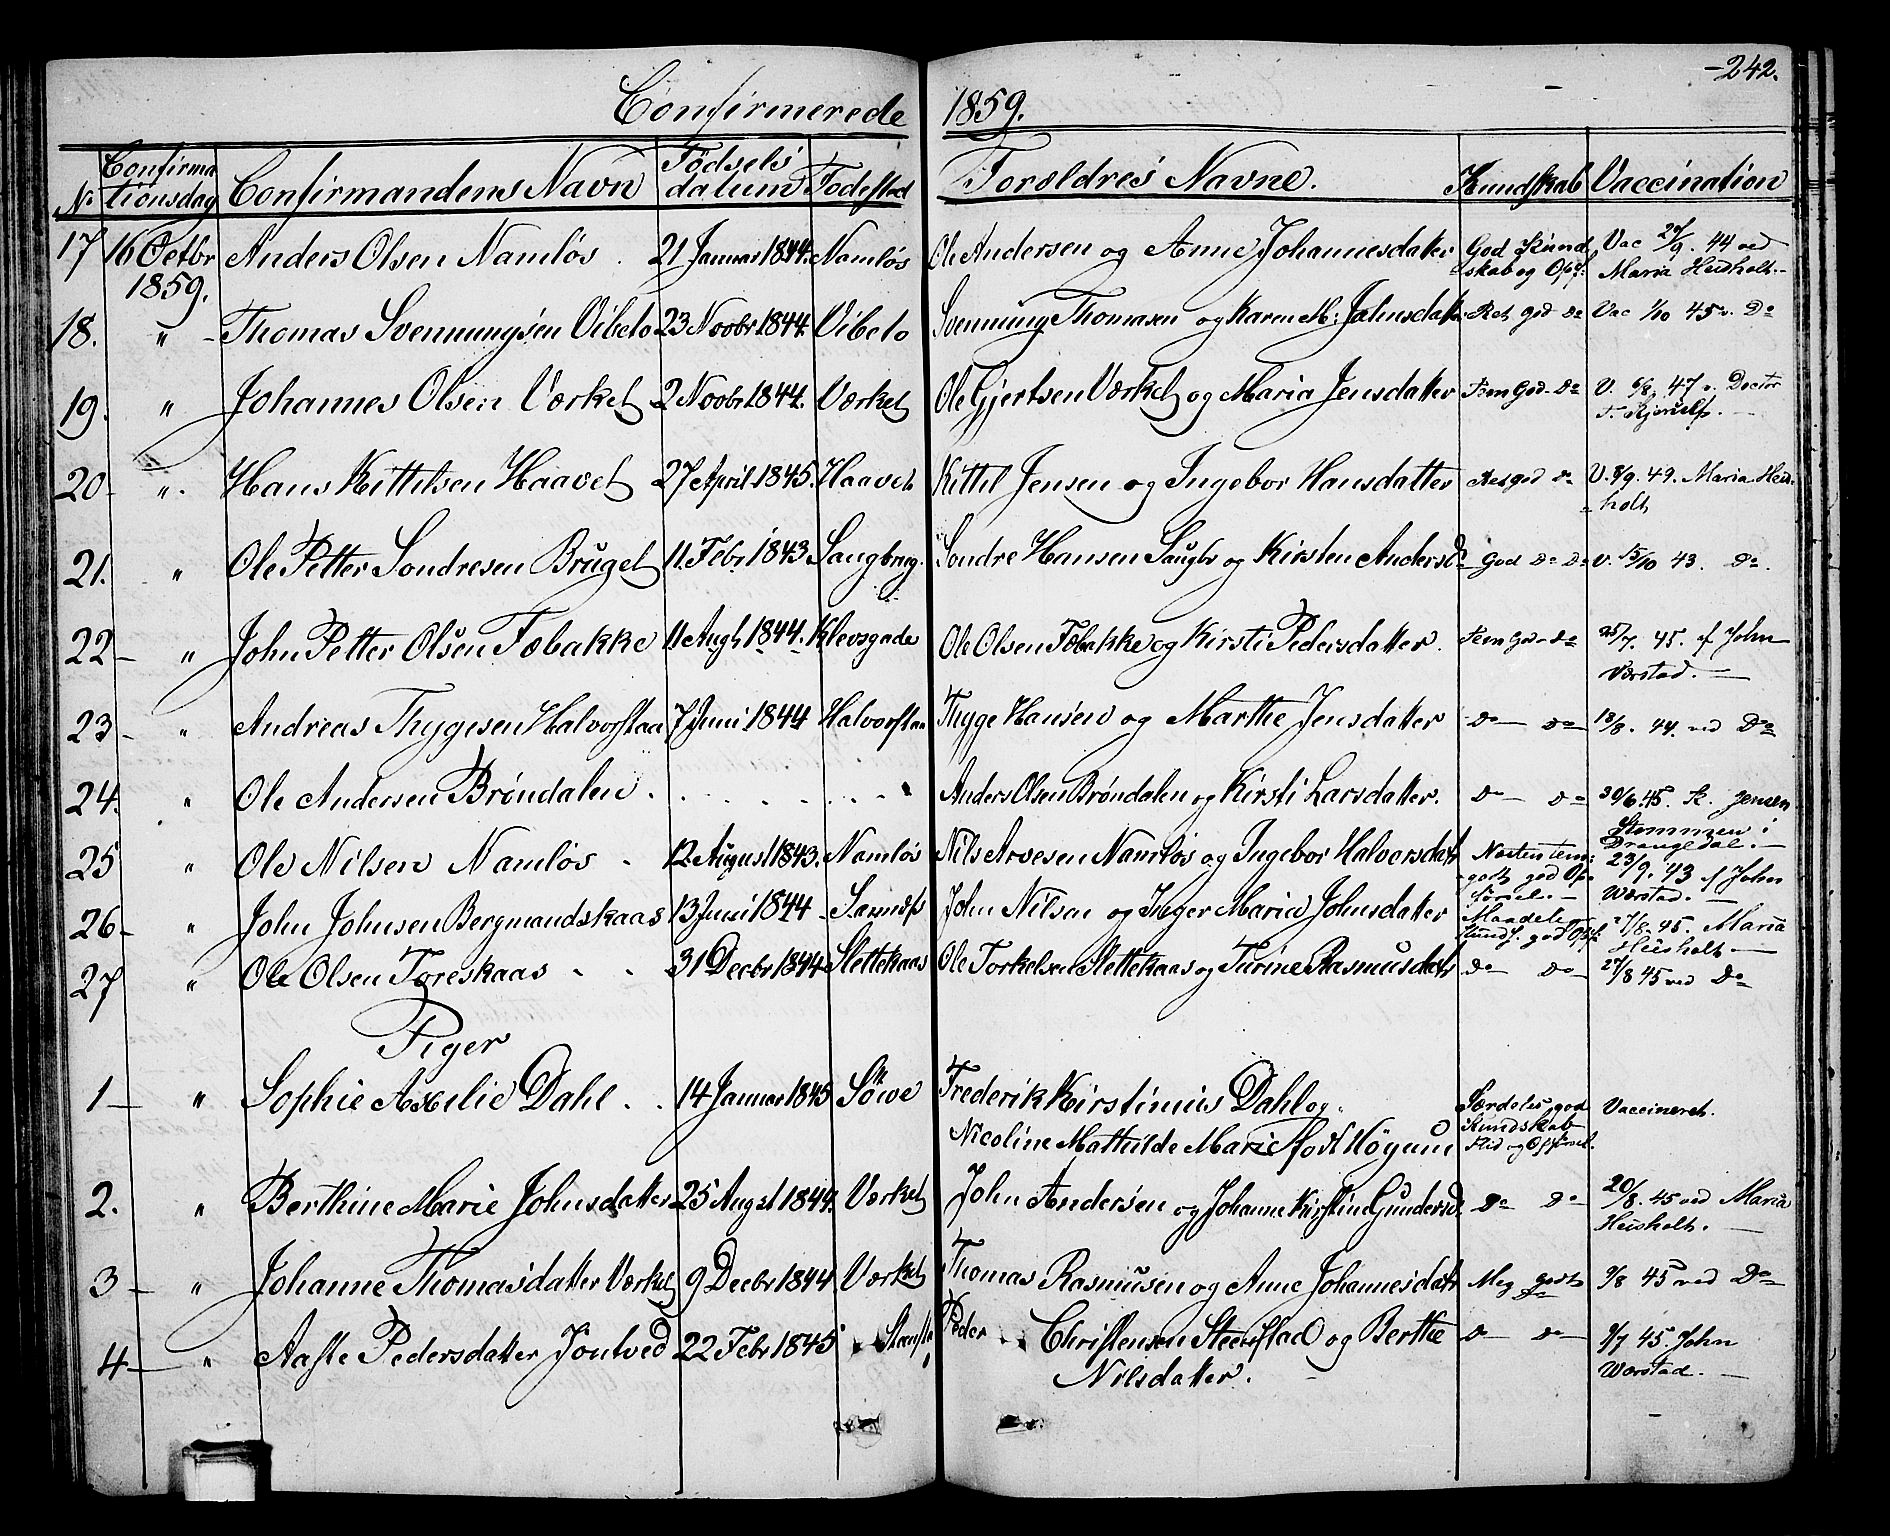 -242.
Confirmerede 1859.
No Confirmationsdag Confirmandens Navn Födselsdatum Födested Forældres Navne. Kundskab Vaccination
17 16 Octbr 1859. Anders Olsen Namløs . 21 Januar 1844. Namløs Ole Andersen og Anne Johannesdatter God Kundskab og Opf: Vac 29/9. 44 ved Maria Heisholt.
18. " Thomas Svennungsen Vibeto 23 Novbr 1844. Vibeto Svennung Thomasen og Karen M: Jahnsdatter Ret god Do Vac 1/10 45 v. Do
19. " Johannes Olsen Værket 2 Novbr 1844. Værket Ole Gjertsen Værket og Maria Jensdatter Tem God Do V. 6/8. 47 v. Doctor
20 " Hans Kittilsen Haavet 27 April 1845. Haavet Kittil Jensen og Ingebor Hansdatter Ret god Do V. 8/9. 49. Maria Heisholt
21. " Ole Petter Sondresen Bruget 11 Febr 1843 Saugbrug. Sondre Hansen Saugbr og Kirsten Andersd God Do Do V. 15/10 43. Do.
22 " John Petter Olsen Fæbakke 11 Augt 1844. Klevsgade Ole Olsen Fæbakke og Kirsti Pedersdatter. Tem God Do 25/7. 45. af John Værstad.
23 " Andreas Thygesen Halvorstaa 7 Juni 1844 Halvorstaa Thygge Hansen og Marthe Jensdatter Do Do 18/8. 44. ved Do
24. " Ole Andersen Brøndalen . . . . Anders Olsen Brøndalen og Kirsti Larsdatter. Do Do 30/6 45. K. Jensen Stemmen i Drangedal.
25 " Ole Nilsen Namløs . 12 August 1843. Namløs Nils Arvesen Namløs og Ingebor Halvorsdatr Næsten temgodt god Opførsel. 23/9. 43 af John Wærstad.
26 " John Johnsen Bergmandskaas 13 Juni 1844 John Nilsen og Inger Maria Johnsdatter Maadelig Kundsk. god Opf. 27/8. 45. Maria Heisholt
27 " Ole Olsen Toreskaas . . 31 Decbr 1844 Slettekaas Ole Torkelsen Slettekaas og Turine Rasmusdatr Do Do 27/8 45 ved Do
Piger
1 " Sophie Axelie Dahl . . 14 Januar 1845 Söwe Frederik Kirstinius Dahl og Nicoline Mathilde Marie fød Høgum Særdeles god Kundskab Flid og Opførsel. Vaccineret.
2. " Berthine Marie Johnsdatter 25 Augst 1844. Værket John Andersen og Johanne Kirstine Gundersd Do Do 20/8. 45 ved Maria Heisholt.
3 " Johanne Thomasdatter Værket 9 Decbr 1844. Værket Thomas Rasmusen og Anne Johannesdatr Meg godt Do 9/8 45 ved Do
4 " Aaste Pedersdatter Jontved 22 Febr 1845 Peder Christensen Steenstad og Berthe Nilsdatter. Do Do 9/7 45. John Wærstad.